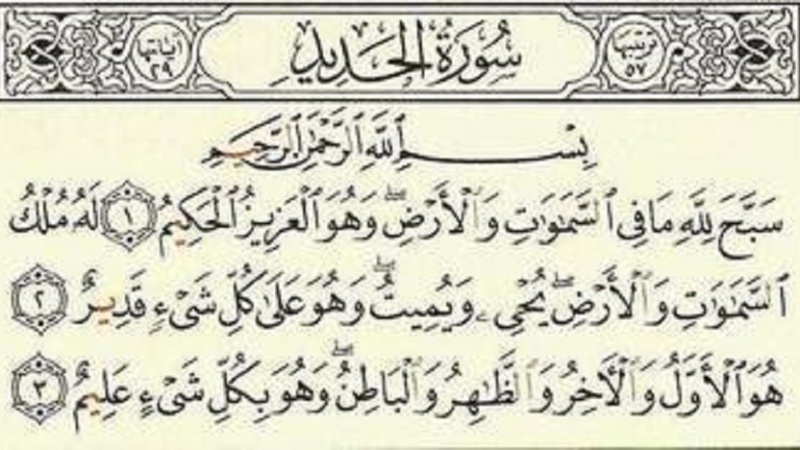 ترتيبها ٥٧ سُورَةُ الحَدِيدِ آياتها ٢٩
بِسْمِ ٱللَّهِ ٱلرَّحْمَٰنِ ٱلرَّحِيمِ
سَبَّحَ لِلَّهِ مَا فِى ٱلسَّمَٰوَٰتِ وَٱلْأَرْضِ ۖ وَهُوَ ٱلْعَزِيزُ ٱلْحَكِيمُ ١ لَهُۥ مُلْكُ
ٱلسَّمَٰوَٰتِ وَٱلْأَرْضِ ۖ يُحْىِۦ وَيُمِيتُ ۖ وَهُوَ عَلَىٰ كُلِّ شَىْءٍ قَدِيرٌ ٢
هُوَ ٱلْأَوَّلُ وَٱلْءَاخِرُ وَٱلظَّٰهِرُ وَٱلْبَاطِنُ ۖ وَهُوَ بِكُلِّ شَىْءٍ عَلِيمٌ ٣